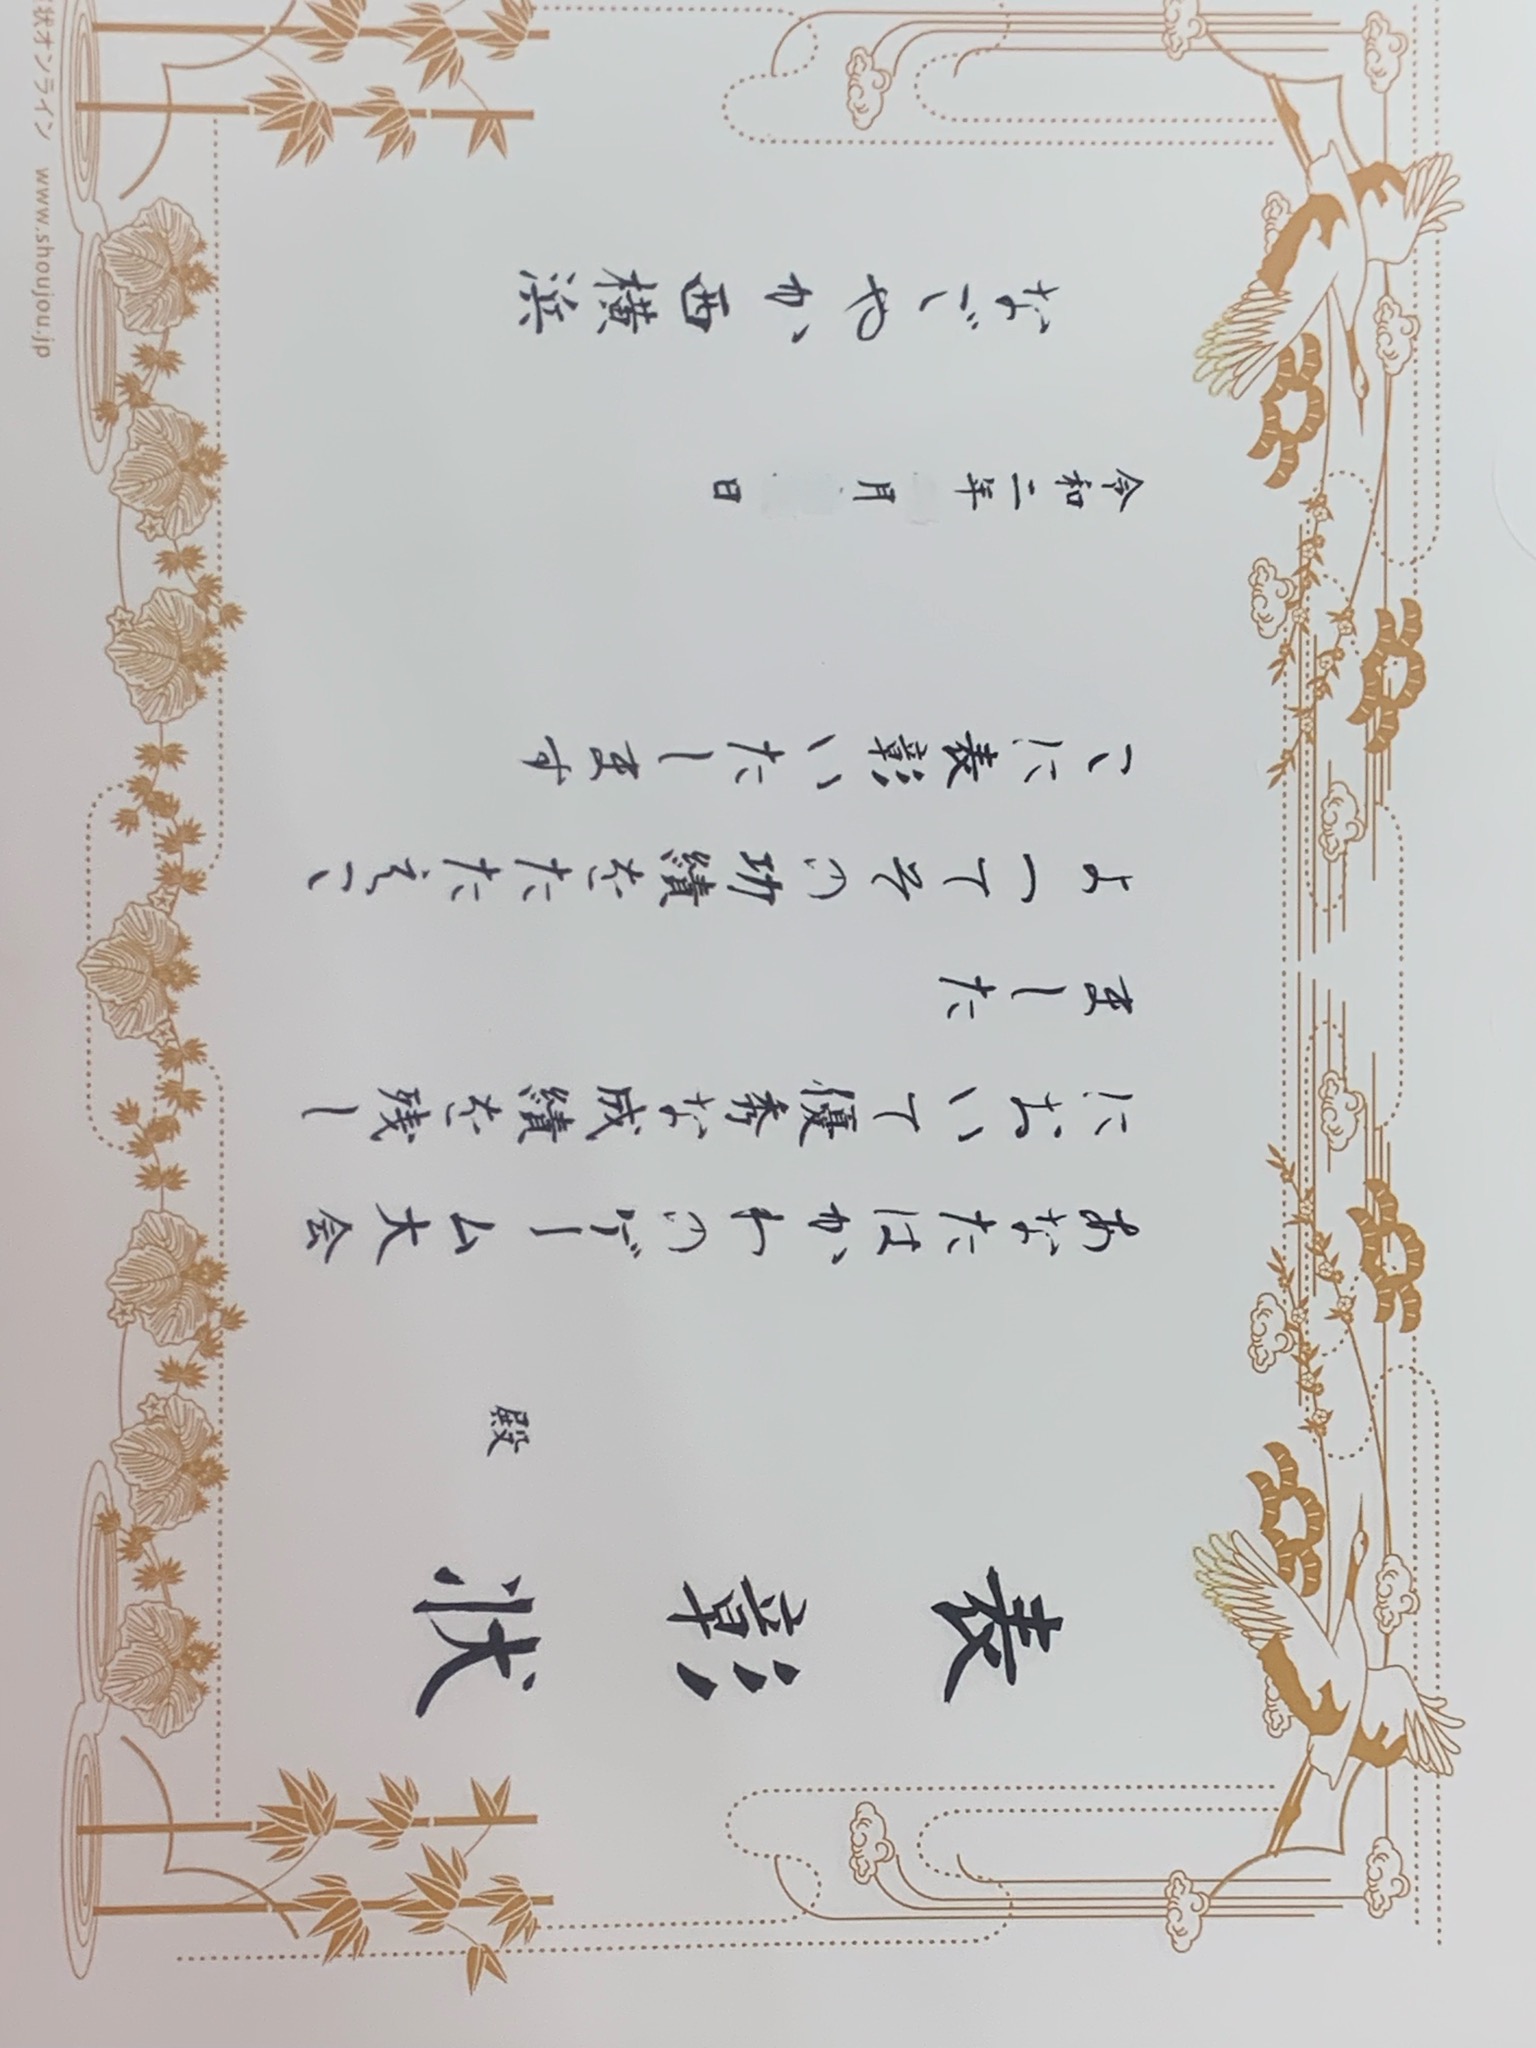 表彰状
殿
あなたはかわのゲーム大会
において優秀な成績を残し
ました
よってその功績をたたえこ
こに表彰いたします
令和二年 月 日
なごやか西横浜
状オンライン www.shoujou.jp